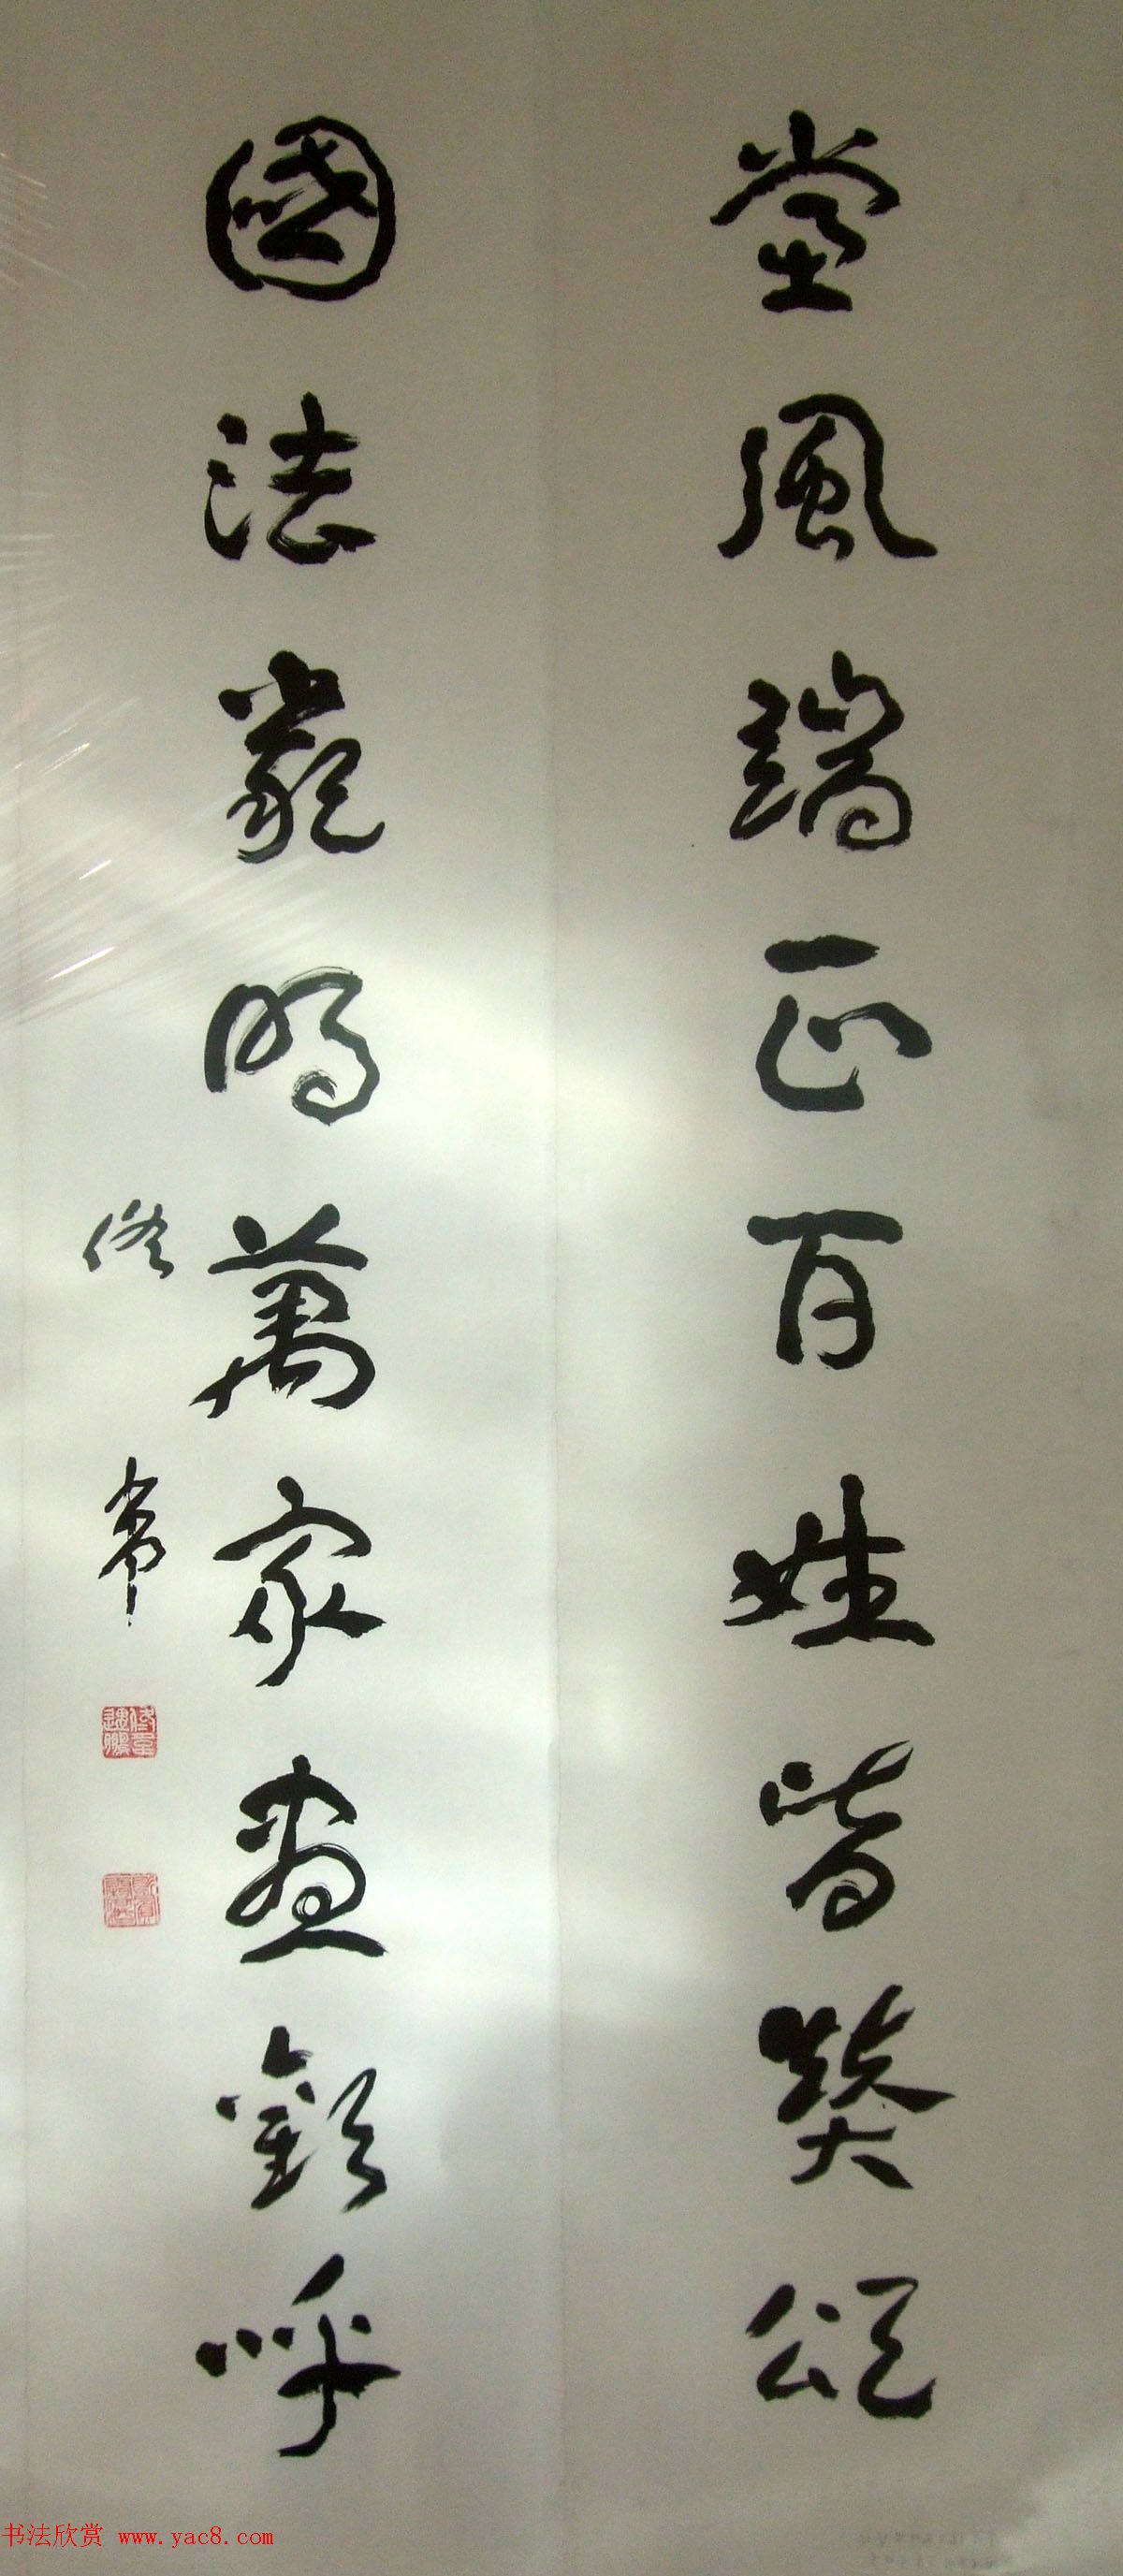 黨風端正百姓皆奬頌
國法嚴明萬家盡歡呼
佟韋
书法欣赏 www.yac8.com